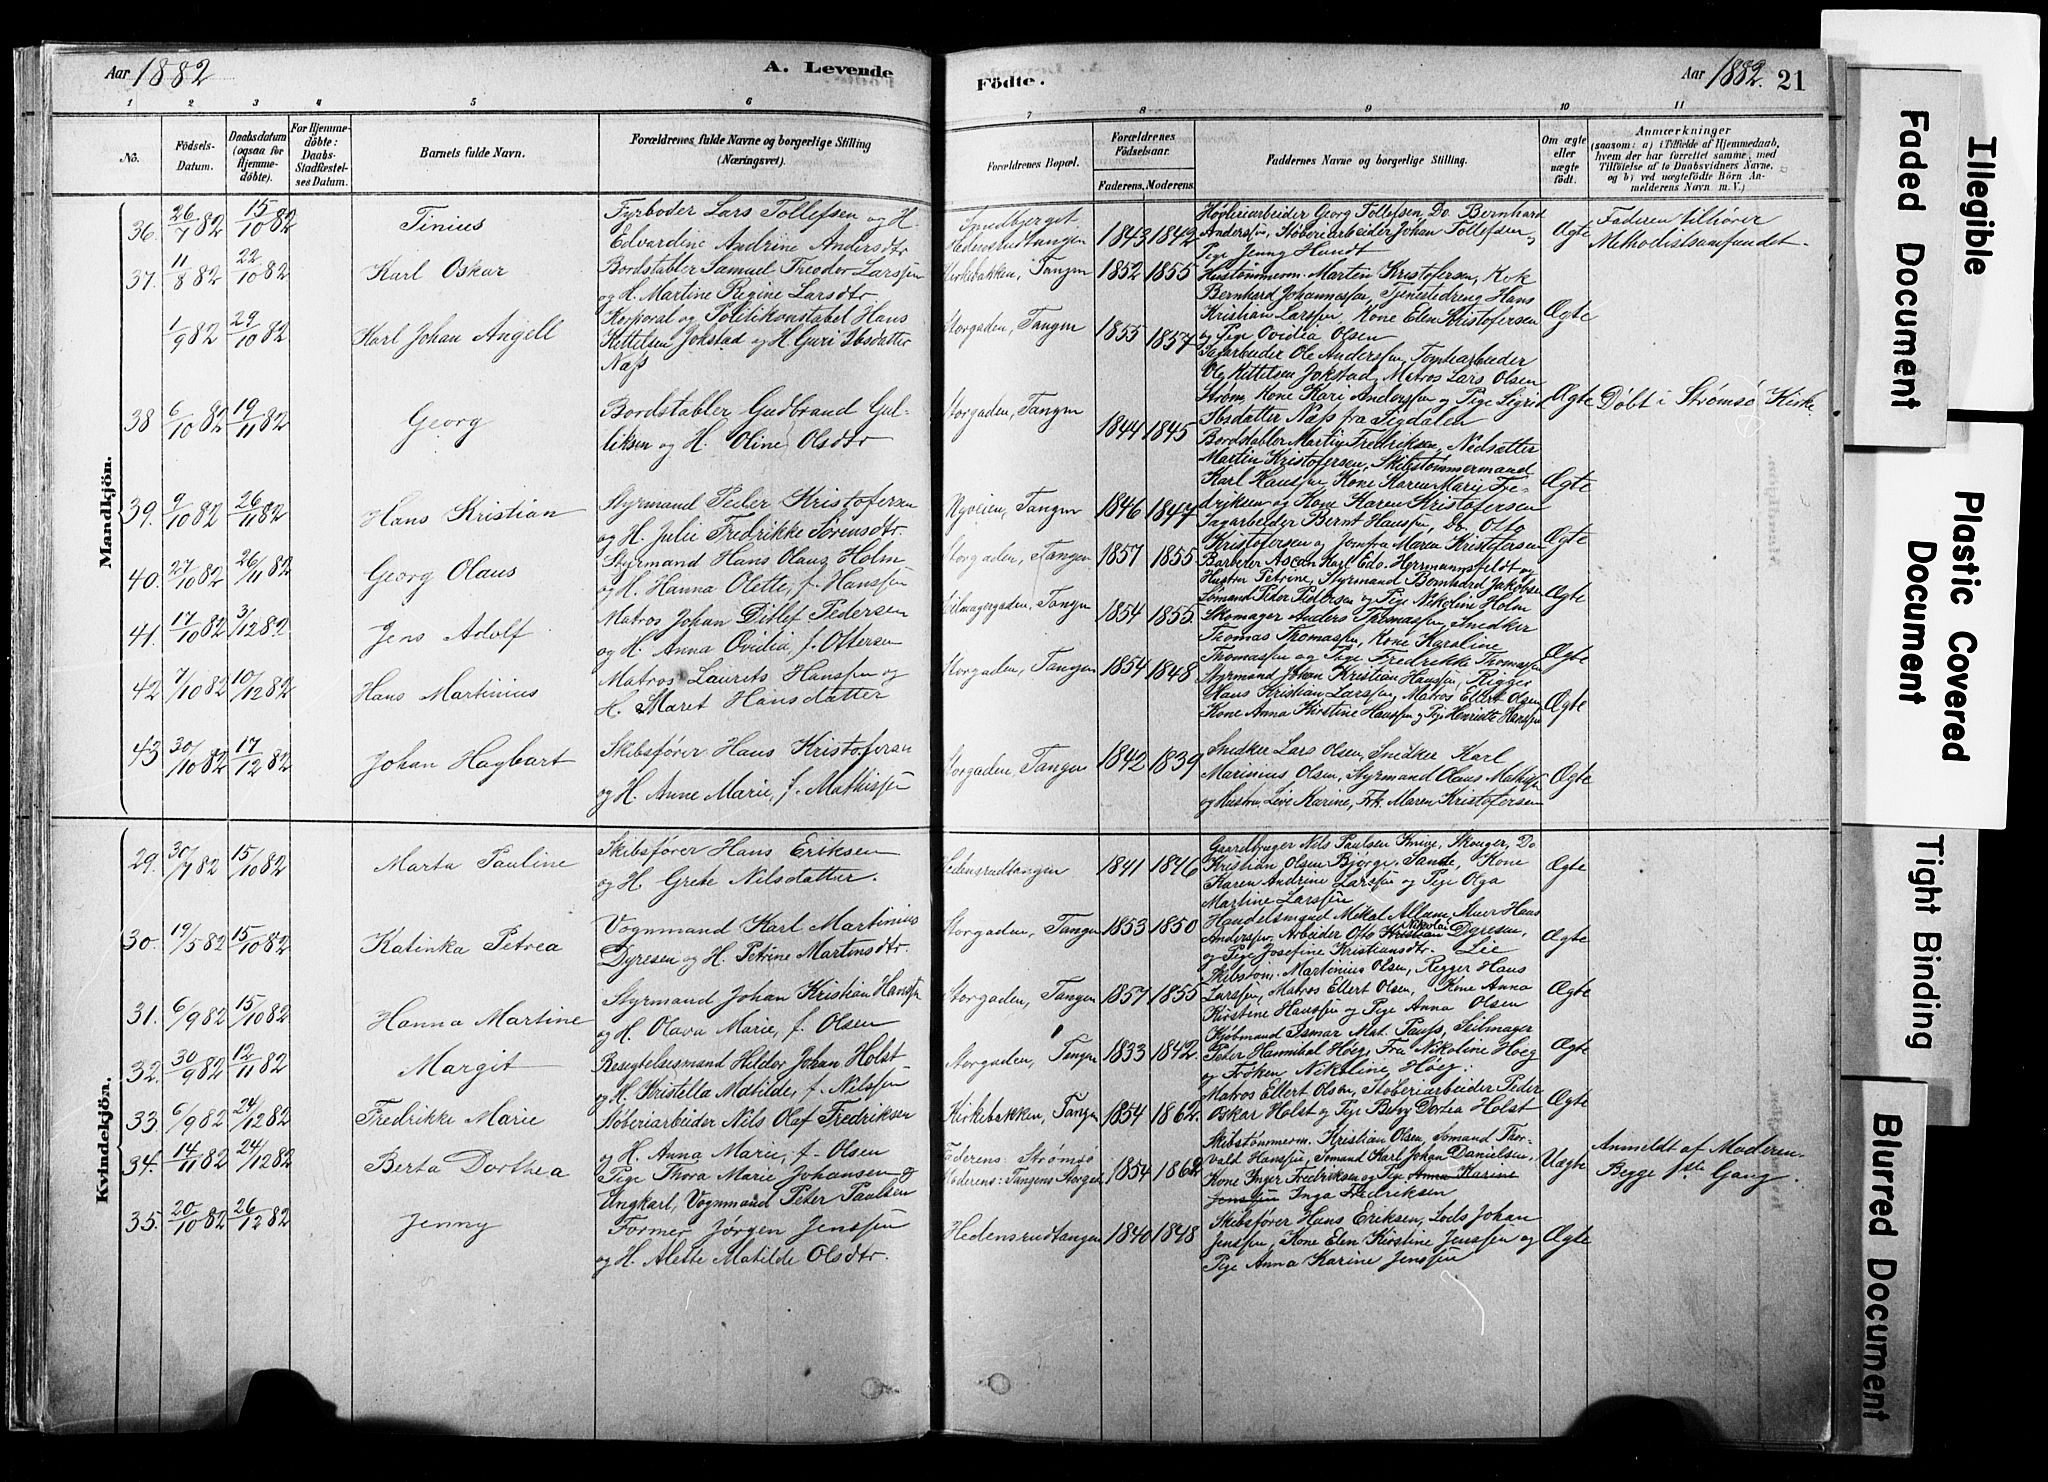 Aar 1882
A. Levende
Födte.
Aar 1882. 21
1 2 3 4 5 6 7 8 9 10 11
No.
Födsels-Datum.
Daabsdatum (ogsaa for Hjemme-döbte).
For Hjemme-döbte: Daabs-Stadfæstel-ses Datum.
Barnets fulde Navn.
Forældrenes fulde Navne og borgerlige Stilling (Næringsvei).
Forældrenes Bopæl.
Forældrenes Födselsaar.
Faderens. Moderens.
Faddernes Navne og borgerlige Stilling.
Om ægte eller uægte födt.
Anmærkninger
(saasom: a) i Tilfælde af Hjemmedaab, hvem der har forrettet samme, med Tilföielse af to Daabsvidners Navne, og b) ved uægtefödte Börn Anmelderens Navn m. V.)
Mandkjön.
36. 26/7 82 15/10 82 Tinius
Fyrböder Lars Tollefsen og H.
Edvardine Andrine Andersdtr
Hedensrudtangen 1843 1842
Høvleriarbeider Georg Tollefsen, Do. Bernhard
Anderssen, Støberiarbeider Johan Tollefsen og
Pige Jenny Hundt
Ægte
Faderen tilhører
Methodistsamfundet.
37. 11/8 82 22/10 82 Karl Oskar
Bordstabler Samuel Theodor Larssen
og H. Martine Regine Larsdtr
Kirkebakken, Tangen 1852 1855
Hustømmerm. Martin Kristofersen, Kok
Bernhard Johannessen, Tjenestedreng Hans
Kristian Larssen, Kone Elen Kristofersen
og Pige Ovidia Olsen
Ægte
1/9 82 29/10 82 Karl Johan Angell
Korporal og Politikonstabel Hans
Kettelsen Jokstad og H. Guri Ibsdatter
Næss
Storgaden, Tangen 1855 1857
Sagarbeider Ole Anderssen, Tomtearbeider
Ole Kittelsen Jokstad, Matros Lars Olsen
Strøm, Kone Kari Anderssen og Pige Sigrid
Ibsdatter Næss fra Sigdalen
Ægte
Døbt i Strømsø Kirke.
38 6/10 82 19/11 82 Georg
Bordstabler Gudbrand Gul-
liksen og H. Oline Olsdtr
Storgaden, Tangen 1844 1845
Bordstabler Martin Fredriksen, Nedsætter
Martin Kristofersen, Skibstømmermand
Karl Hanssen, Kone Karen Marie Fre-
driksen og Kone Karen Kristofersen
Ægte
39. 9/10 82 26/11 82 Hans Kristian
Styrmand Peder Kristofersen
og H. Julie Fredrikke Sørensdtr.
Nyveien, Tangen 1846 1847
Sagarbeider Bernt Hanssen, Do. Otto
Kristofersen og Jomfru Maren Kristofersen
Ægte
40. 27/10 82 26/11 82 Georg Olaus
Styrmand Hans Olaus Holm
og H. Hanna Olette, f. Hanssen
Storgaden, Tangen 1857 1855
Barberer Ascan Karl Edv. Herrmannsfeldt og
Hustru Petrine, Styrmand Bernhard Jakobsen
Sømand Peter Pedersen og Pige Nikoline Holm
Ægte
41. 17/10 82 3/12 82 Jens Adolf
Matros Johan Ditlef Pedersen
og H. Anna Ovidia, f. Ottersen
Tangen 1854 1855.
Skomager Anders Thomassen, Snedker
Thomas Thomassen, Kone Karoline
Thomassen og Pige Fredrikke Thomassen
Ægte
42 7/10 82 10/12 82 Hans Martinius
Matros Laurits Hanssen og
H. Maret Hansdatter
Storgaden, Tangen 1854 1848
Styrmand Johan Kristian Hanssen, Rigger
Hans Kristian Larssen, Matros Ellert Olsen
Kone Anna Kirstine Hanssen og Pige Henriette Hanssen
Ægte
43 30/10 82 17/12 82 Johan Hagbart
Skibsfører Hans Kristofersen
og H. Anne Marie, f. Mathissen
Storgaden, Tangen 1842 1839
Snedker Lars Olsen, Snedker Karl
Marinius Olsen, Styrmand Olaus Mathissen
og Hustru Live Karine, Frk. Maren Kristofersen
Ægte
Kvindekjön.
29. 30/7 82 15/10 82 Marta Pauline
Skibsfører Hans Eriksen
og H. Grete Nilsdatter.
Hedensrudtangen 1841 1846
Gaardbruger Nils Paulsen Knive, Skouger, Do.
Kristian Olsen Bjørge, Sande, Kone
Karen Andrine Larssen og Pige Olga
Martine Larssen
Ægte
30. 19/5 82 15/10 82 Katinka Petrea
Vognmand Karl Martinius
Dyresen og H. Petrine Martinsdtr.
Storgaden, Tangen 1853 1850
Handelsmand Mikal Allum, Murer Hans
Anderssen, Arbeider Otto Kristian Nikolai Dyresen,
og Pige Josefine Kristiansdtr. Lie
Ægte
31. 6/9 82 15/10 82 Hanna Martine
Styrmand Johan Kristian Hanssen
og H. Olava Marie, f. Olsen
Storgaden, Tangen 1857 1855
Skibstøm. Martinius Olsen, Rigger Hans
Larssen, Matros Ellert Olsen, Kone Anna
Kirstine Hanssen og Pige Anna Olsen
Ægte
32. 30/9 82 12/11 82 Margit
Besigtelsesmand Heldor Johan Holst
og H. Kristella Matilde, f. Nilssen
Storgaden, Tangen 1833 1842.
Kjøbmand Ismar Mat. Pauss, Seilmager
Peter Hannibal Høeg, Fru Nikoline Høeg
og Frøken Nikoline Høeg.
Ægte
33. 6/9 82 24/12 82 Fredrikke Marie
Støberiarbeider Nils Olaf Fredriksen
og H. Anna Marie, f. Olsen
Kirkebakken, Tangen 1854 1862.
Matros Ellert Olsen, Støberiarbeider Peder
Oskar Holst og Pige Betsy Dortea Holst
Ægte
34. 14/11 82 24/12 82 Berta Dorthea
Pige Thora Marie Johansen og
Ungkarl, Vognmand Peter Paulsen
Faderens: Strømsø
Moderens: Tangens Storgade 1854 1862
Skibstømmerm. Kristian Olsen, Sømand Thor-
vald Hanssen, Sømand Karl Johan Danielsen,
Kone Inger Fredriksen og Pige Anna Karine
Jenssen Inga Fredriksen
Uægte
Anmeldt af Moderen.
Begge 1ste Gang.
35. 20/10 82 26/12 82 Jenny
Former Jørgen Jenssen
og H. Alette Matilde Olsdtr.
Hedensrudtangen 1840 1848
Skibsfører Hans Eriksen, Lods Johan
Jenssen, Kone Elen Kirstine Jenssen og
Pige Anna Karine Jenssen
Ægte
Illegible
Faded Document
Plastic Covered
Document
Tight Binding
Blurred Document